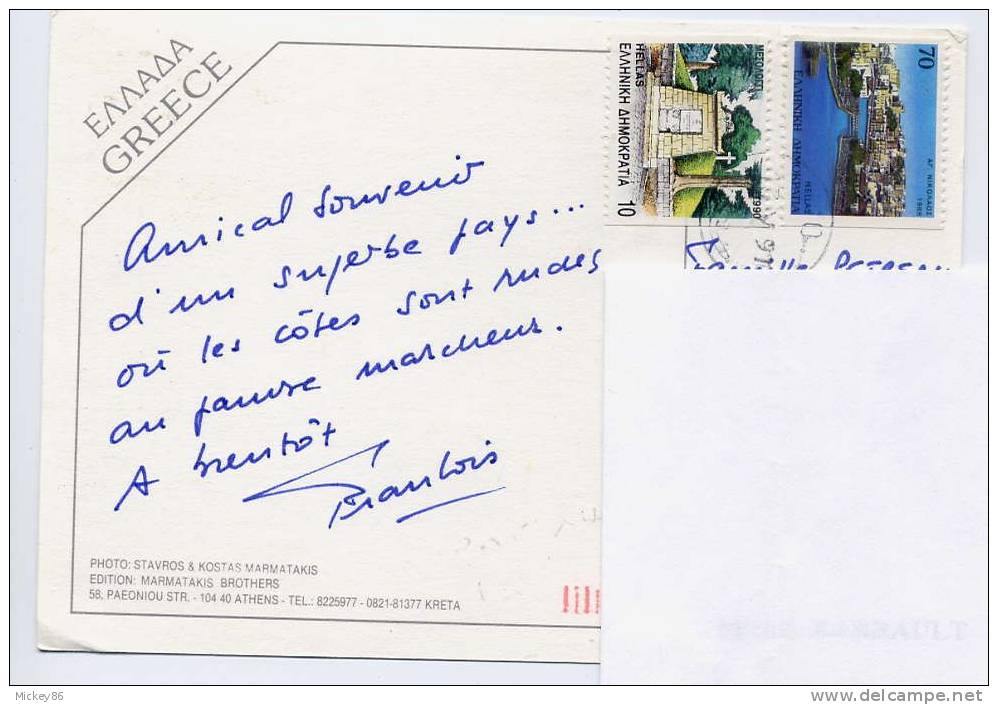 ΕΛΛΑΔΑ
GREECE
Amical souvenir
d'un superbe pays...
où les côtes sont rudes
au pauvre marcheur.
A bientôt
PHOTO: STAVROS & KOSTAS MARMATAKIS
EDITION: MARMATAKIS BROTHERS
58, PAEONIOU STR. - 104 40 ATHENS - TEL.: 8225977 - 0821-81377 KRETA
ΜΕΣΟΛΟΓΓΙ
HELLAS
ΕΛΛΗΝΙΚΗ ΔΗΜΟΚΡΑΤΙΑ
10
1990
70
ΑΓ ΝΙΚΟΛΑΟΣ
1988
HELLAS
ΕΛΛΗΝΙΚΗ ΔΗΜΟΚΡΑΤΙΑ
Mickey86
www.delcampe.net